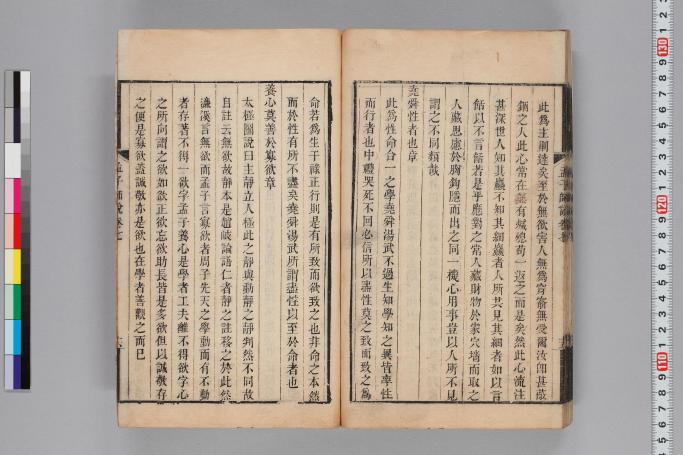 此爲主則達矣至於無欲害人無爲穿窬無受爾汝卽甚蔽
錮之人此心常在
一返之而是矣然此心流注
甚深世人知其麤不知其細麤者人所共見其細者如以言
餂以不言餂者是乎應對之常人藏財物於家穴墻而取之
人藏思慮於胸鉤隱而出之同一機心用事豈以人所不見
謂之不同類哉
堯舜性者也章
此爲性命合一之學堯舜湯武不過生知學知之異皆率性
而行者也中禮哭死不回必信所以盡性莫之致而致之爲
命若爲生干祿正行則是有所致而欲致之也非命之本然
而於性有所不盡矣堯舜湯武所謂盡性以至於命者也
養心莫善於寡欲章
太極圖說曰主靜立人極此之靜與動靜之靜判然不同故
自註云無欲故靜本是
論語仁者靜之註移之於此然
濂溪言無欲而孟子言寡欲者周子先天之學動而有不動
者存著不得一欲字孟子養心是學者工夫離不得欲字心
之所向謂之欲如欲正欲忘欲助長皆是多欲但以誠敬存
之便是寡欲蓋誠敬亦是欲也在學者善觀之而已
孟子師說卷七
130
120
110